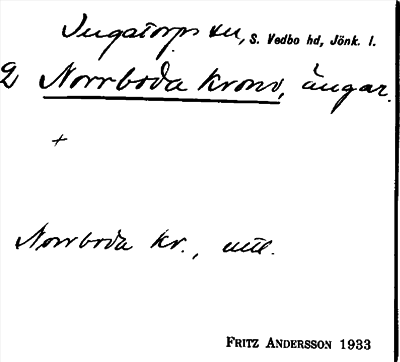 Ingatorps sn, S. Vedbo hd, Jönk. l.
2 Norrboda Krono, ängar.
+
Norrboda Kr., utt.
FRITZ ANDERSSON 1933